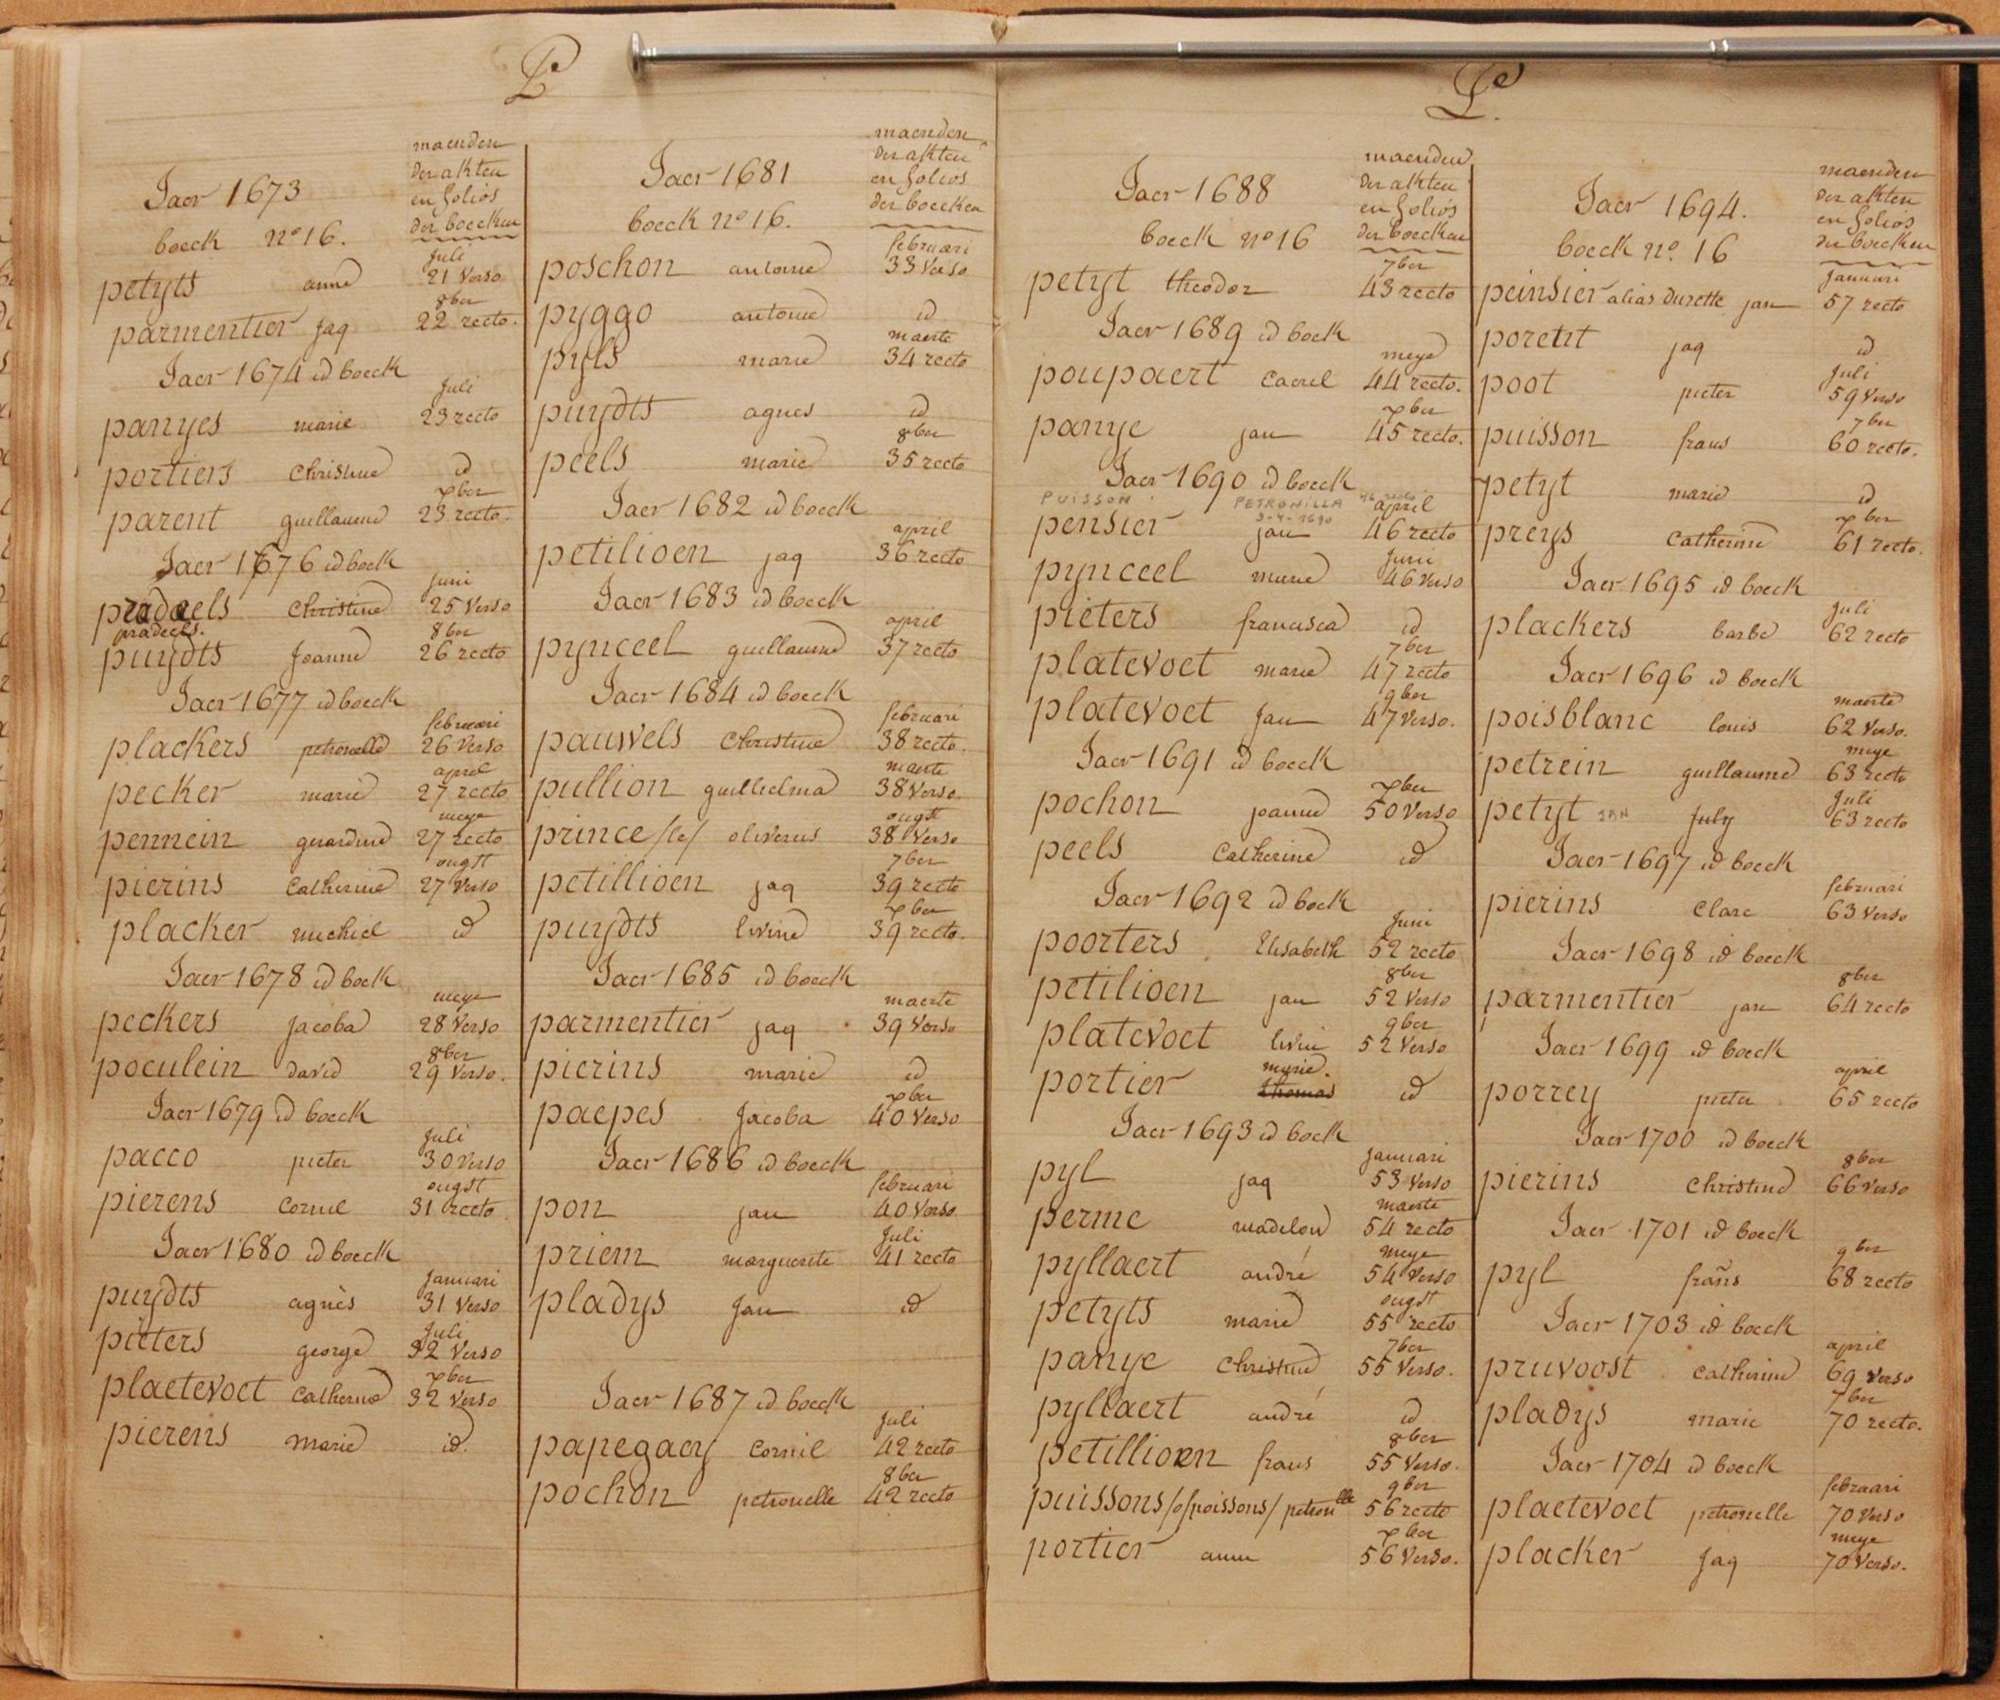 P
maenden
der akten
en folios
der boecken
Jaer 1673
boeck nº 16.
juli
petyts anne 21 verso
8ber
parmentier jaq 22 recto.
Jaer 1674 id boeck
juli
panyes marie 23 recto
portiers christine id
xber
parent guillaume 23 recto.
Jaer 1676 id boeck
juni
pradeels christine 25 verso
pradeels.
8ber
puydts joanne 26 recto
Jaer 1677 id boeck
februari
plackers petronelle 26 verso
april
pecker marie 27 recto
meye
pennein gerardine 27 recto
ougst
pierins catherine 27 verso
placker michiel id
Jaer 1678 id boeck
meye
peckers jacoba 28 verso
8ber
poculein david 29 verso.
Jaer 1679 id boeck
juli
pacco pieter 30 verso
ougst
pierens cornie 31 recto
Jaer 1680 id boeck
januari
puydts agnès 31 verso
juli
pieters george 32 verso
xber
plaetevoet catherine 32 verso
pierens marie id.
maenden
der akten
en folios
der boecken
Jaer 1681
boeck nº 16.
februari
poschon antoine 33 verso
pyggo antoine id
maerte
pyls marie 34 recto
puydts agnes id
8ber
peels marie 35 recto
Jaer 1682 id boeck
april
petilioen jaq 36 recto
Jaer 1683 id boeck
april
pynceel guillaume 37 recto
Jaer 1684 id boeck
februari
pauwels christine 38 recto.
maerte
pullion guillielma 38 verso.
ougst
prince /le/ oliverus 38 verso
7ber
petillioen jaq 39 recto
xber
puydts livine 39 recto.
Jaer 1685 id boeck
maerte
parmentier jaq 39 verso
pierins marie id
xber
paepes jacoba 40 verso
Jaer 1686 id boeck
februari
pon jan 40 verso
juli
priem marguerite 41 recto
pladys jan id
Jaer 1687 id boeck
juli
papegaey cornil 42 recto
8ber
pochon petronelle 42 recto
P.
maenden
der akten
en folios
der boecken
Jaer 1688
boeck nº 16
7ber
petyt theodor 43 recto
Jaer 1689 id boeck
meye
poupaert caerel 44 recto.
xber
panye jan 45 recto.
Jaer 1690 id boeck
PUISSON PETRONILLA 46 recto
3-4-1690
april
pensier jan 46 recto
juni
pynceel marie 46 verso
pieters francisca id
7ber
platevoet marie 47 recto
9ber
platevoet jan 47 verso.
Jaer 1691 id boeck
xber
pochon joanne 50 verso
peels catherine id
Jaer 1692 id boeck
juni
poorters elisabeth 52 recto
8ber
petilioen jan 52 verso
9ber
platevoet livin 52 verso
marie.
portier thomas id
Jaer 1693 id boeck
januari
pyl jaq 53 verso
maerte
perme madelon 54 recto
meye
pyllaert andré 54 verso
ougst
petyts marie 55 recto
7ber
panye christine 55 verso.
pyllaert andré id
8ber
petillioen frans 55 verso.
9ber
puissons /of poissons/ petronlle 56 recto
xber
portier anne 56 verso.
maenden
der akten
en folios
der boecken
Jaer 1694.
boeck nº. 16
januari
peinsier alias durette jan 57 recto
poretit jaq id
juli
poot pieter 59 verso
7ber
puisson frans 60 recto.
petyt marie id
xber
preys catherine 61 recto.
Jaer 1695 id boeck
juli
plackers barbe 62 recto
Jaer 1696 id boeck
maerte
poisblanc louis 62 verso.
meye
petrein guillaume 63 recto
juli
petyt JAN july 63 recto
Jaer 1697 id boeck
februari
pierins clare 63 verso
Jaer 1698 id boeck
8ber
parmentier jan 64 recto
Jaer 1699 id boeck
april
porrey pieter 65 recto
Jaer 1700 id boeck
8ber
pierins christine 66 verso
Jaer 1701 id boeck
9ber
pyl frans 68 recto
Jaer 1703 id boeck
april
pruvoost catherine 69 verso
7ber
pladys marie 70 recto.
Jaer 1704 id boeck
februari
plaetevoet petronelle 70 verso
meye
placker jaq 70 verso.